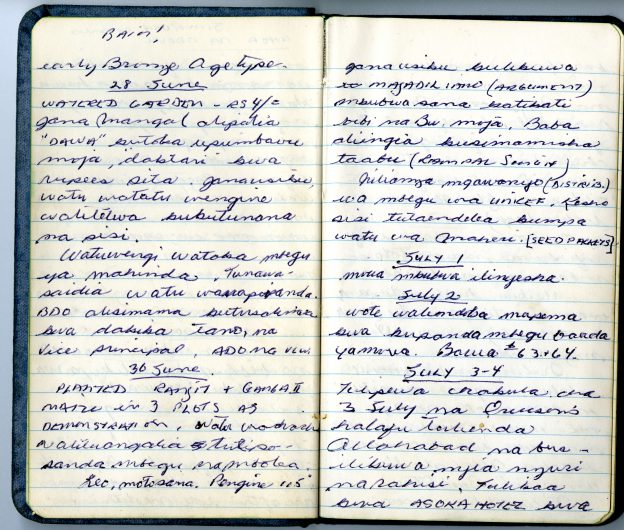 RAIN!
early Bronze Age type.
28 June
WATERED GARDEN - RS 4/=
jana Mangal alipatia
"DAWA" kutoka upumbavu
moja, daktari kwa
rupees sita. Jana usiku,
watu watatu wengine
waliletwa kukutunana
na sisi.
Watu wengi watoka mbegu
ya mahinda. Tunawa-
saidia watu wanapivanda.
BDO alisimama kutusalimia
kwa dakika tano, na
Vice principal, ADO na
30 June.
PLANTED RANJIT + GANGA II
MAIZE in 3 PLOTS AS
DEMONSTRATION, watu wachache
waliuangalia tulipo-
sanda mbegu na mbolea.
Leo, moto sana. Pengine 115°
jana usiku kulikuwa
MAJADILIANO (ARGUMENT)
mkubwa sana katikati
bibi na Bw. moja. Baba
aliingia kusimamisha
taabu (RAMPAL SINGH)
Julianza mgawanyo (DISTRIB.)
wa mbegu wa UNICEF. Kesho
sisi tutaendelea kumpa
watu wa Maheri. [SEED PACKETS]
JULY 1
mvua mkubwa ilinyesha.
July 2
wote walienda mapema
kwa kupanda mbegu baada
ya mvua. Barua # 63 + 64.
JULY 3-4
Tulipewa chakula cha
3 July na Ericsons
halafu tulienda
Allahabad na bus -
ilikuwa njia nzuri
na rahisi. Tulikaa
kwa ASOKA HOTEL kwa